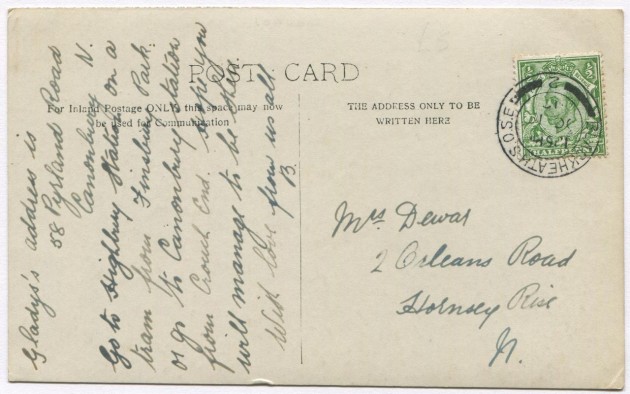 POST CARD
For Inland Postage ONLY this space may now
be used for Communication
THE ADDRESS ONLY TO BE
WRITTEN HERE
Gladys's address is
58 Pyrland Road
Canonbury N.
Go to Highbury Station on a
tram from Finsbury Park.
or go to Canonbury Station
from Crouch End. Hope you
will manage to be there
With love from us all.
B.
Mrs Dewar
2 Orleans Road
Hornsey Rise
N.
BLACKHEATH S.O.S.E.
HALF